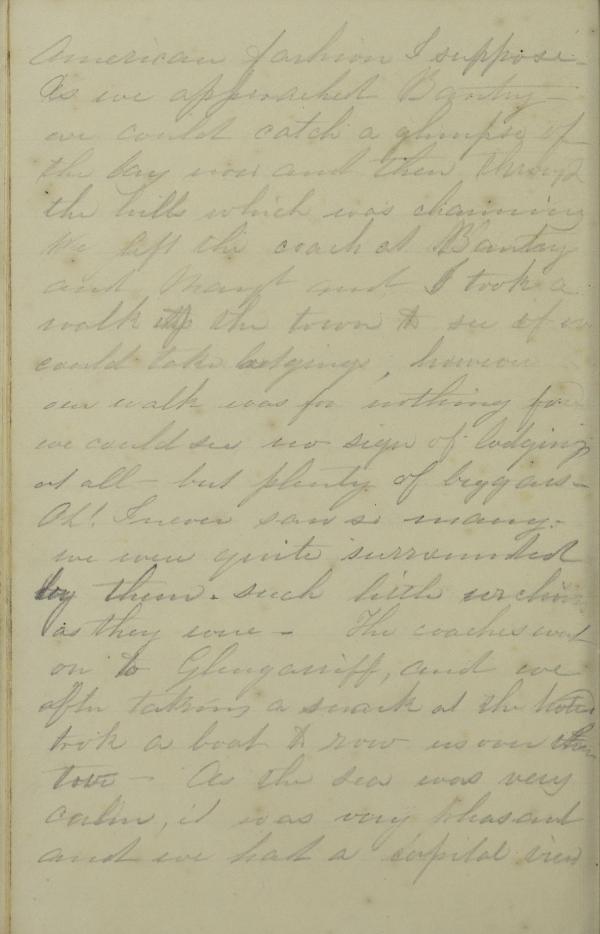 American fashion I suppose -
As we approached Bantry -
we could catch a glimpse of
the bay now and then through
the hills which was charming
We left the coach at Bantry
and Margt and I took a
walk up the town to see if we
could take lodgings, however
our walk was for nothing for
we could see no sign of lodgings
at all - but plenty of beggars -
Oh! I never saw so many.
we were quite surrounded
by them. such little urchins
as they were - The coaches went
on to Glengariff, and we
after taking a snack at the hotel
took a boat to row us over
- As the sea was very
calm, it was very pleasant
and we had a capital view